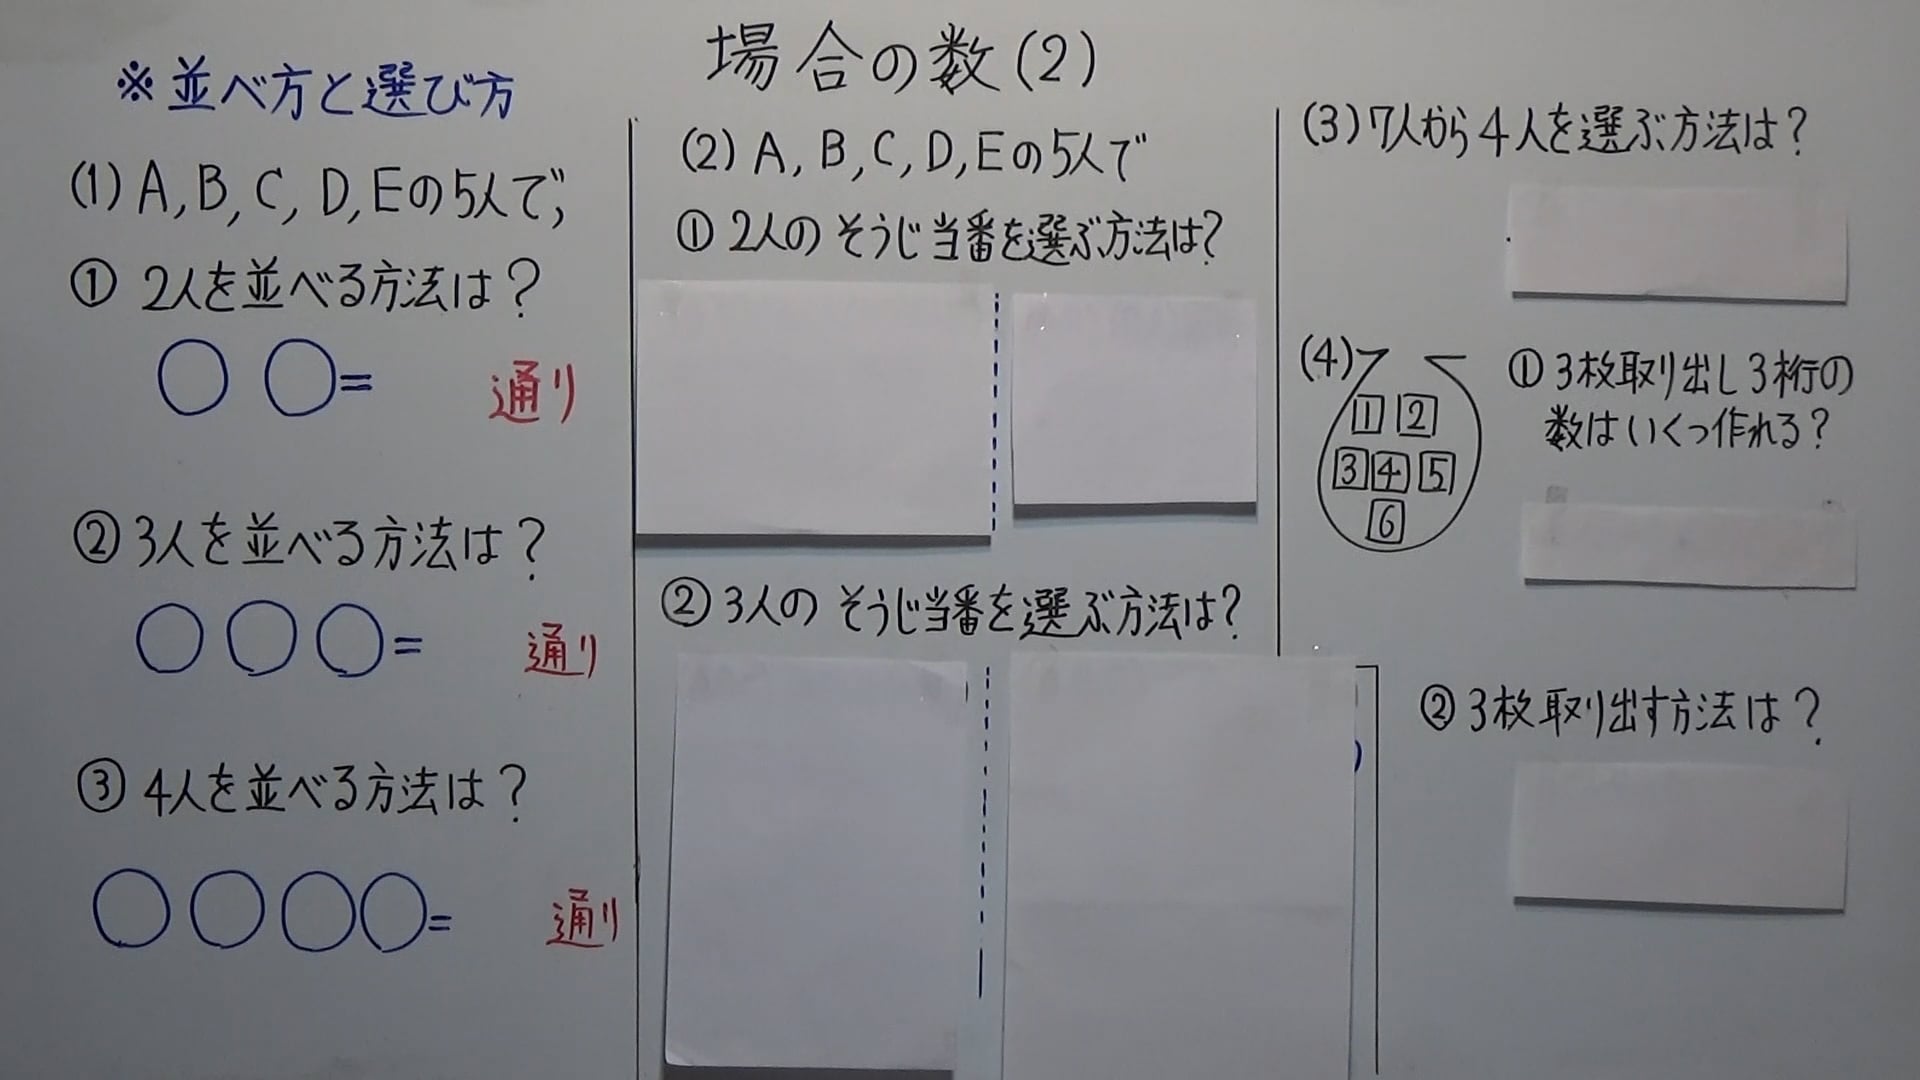 場合の数(2)
※並べ方と選び方
(1) A, B, C, D, Eの5人で,
① 2人を並べる方法は?
○○= 通り
② 3人を並べる方法は?
○○○= 通り
③ 4人を並べる方法は?
○○○○= 通り
(2) A, B, C, D, Eの5人で
① 2人のそうじ当番を選ぶ方法は?
② 3人のそうじ当番を選ぶ方法は?
(3) 7人から4人を選ぶ方法は?
(4)
1 2
3 4 5
6
① 3枚取り出し3桁の
数はいくつ作れる?
② 3枚取り出す方法は?